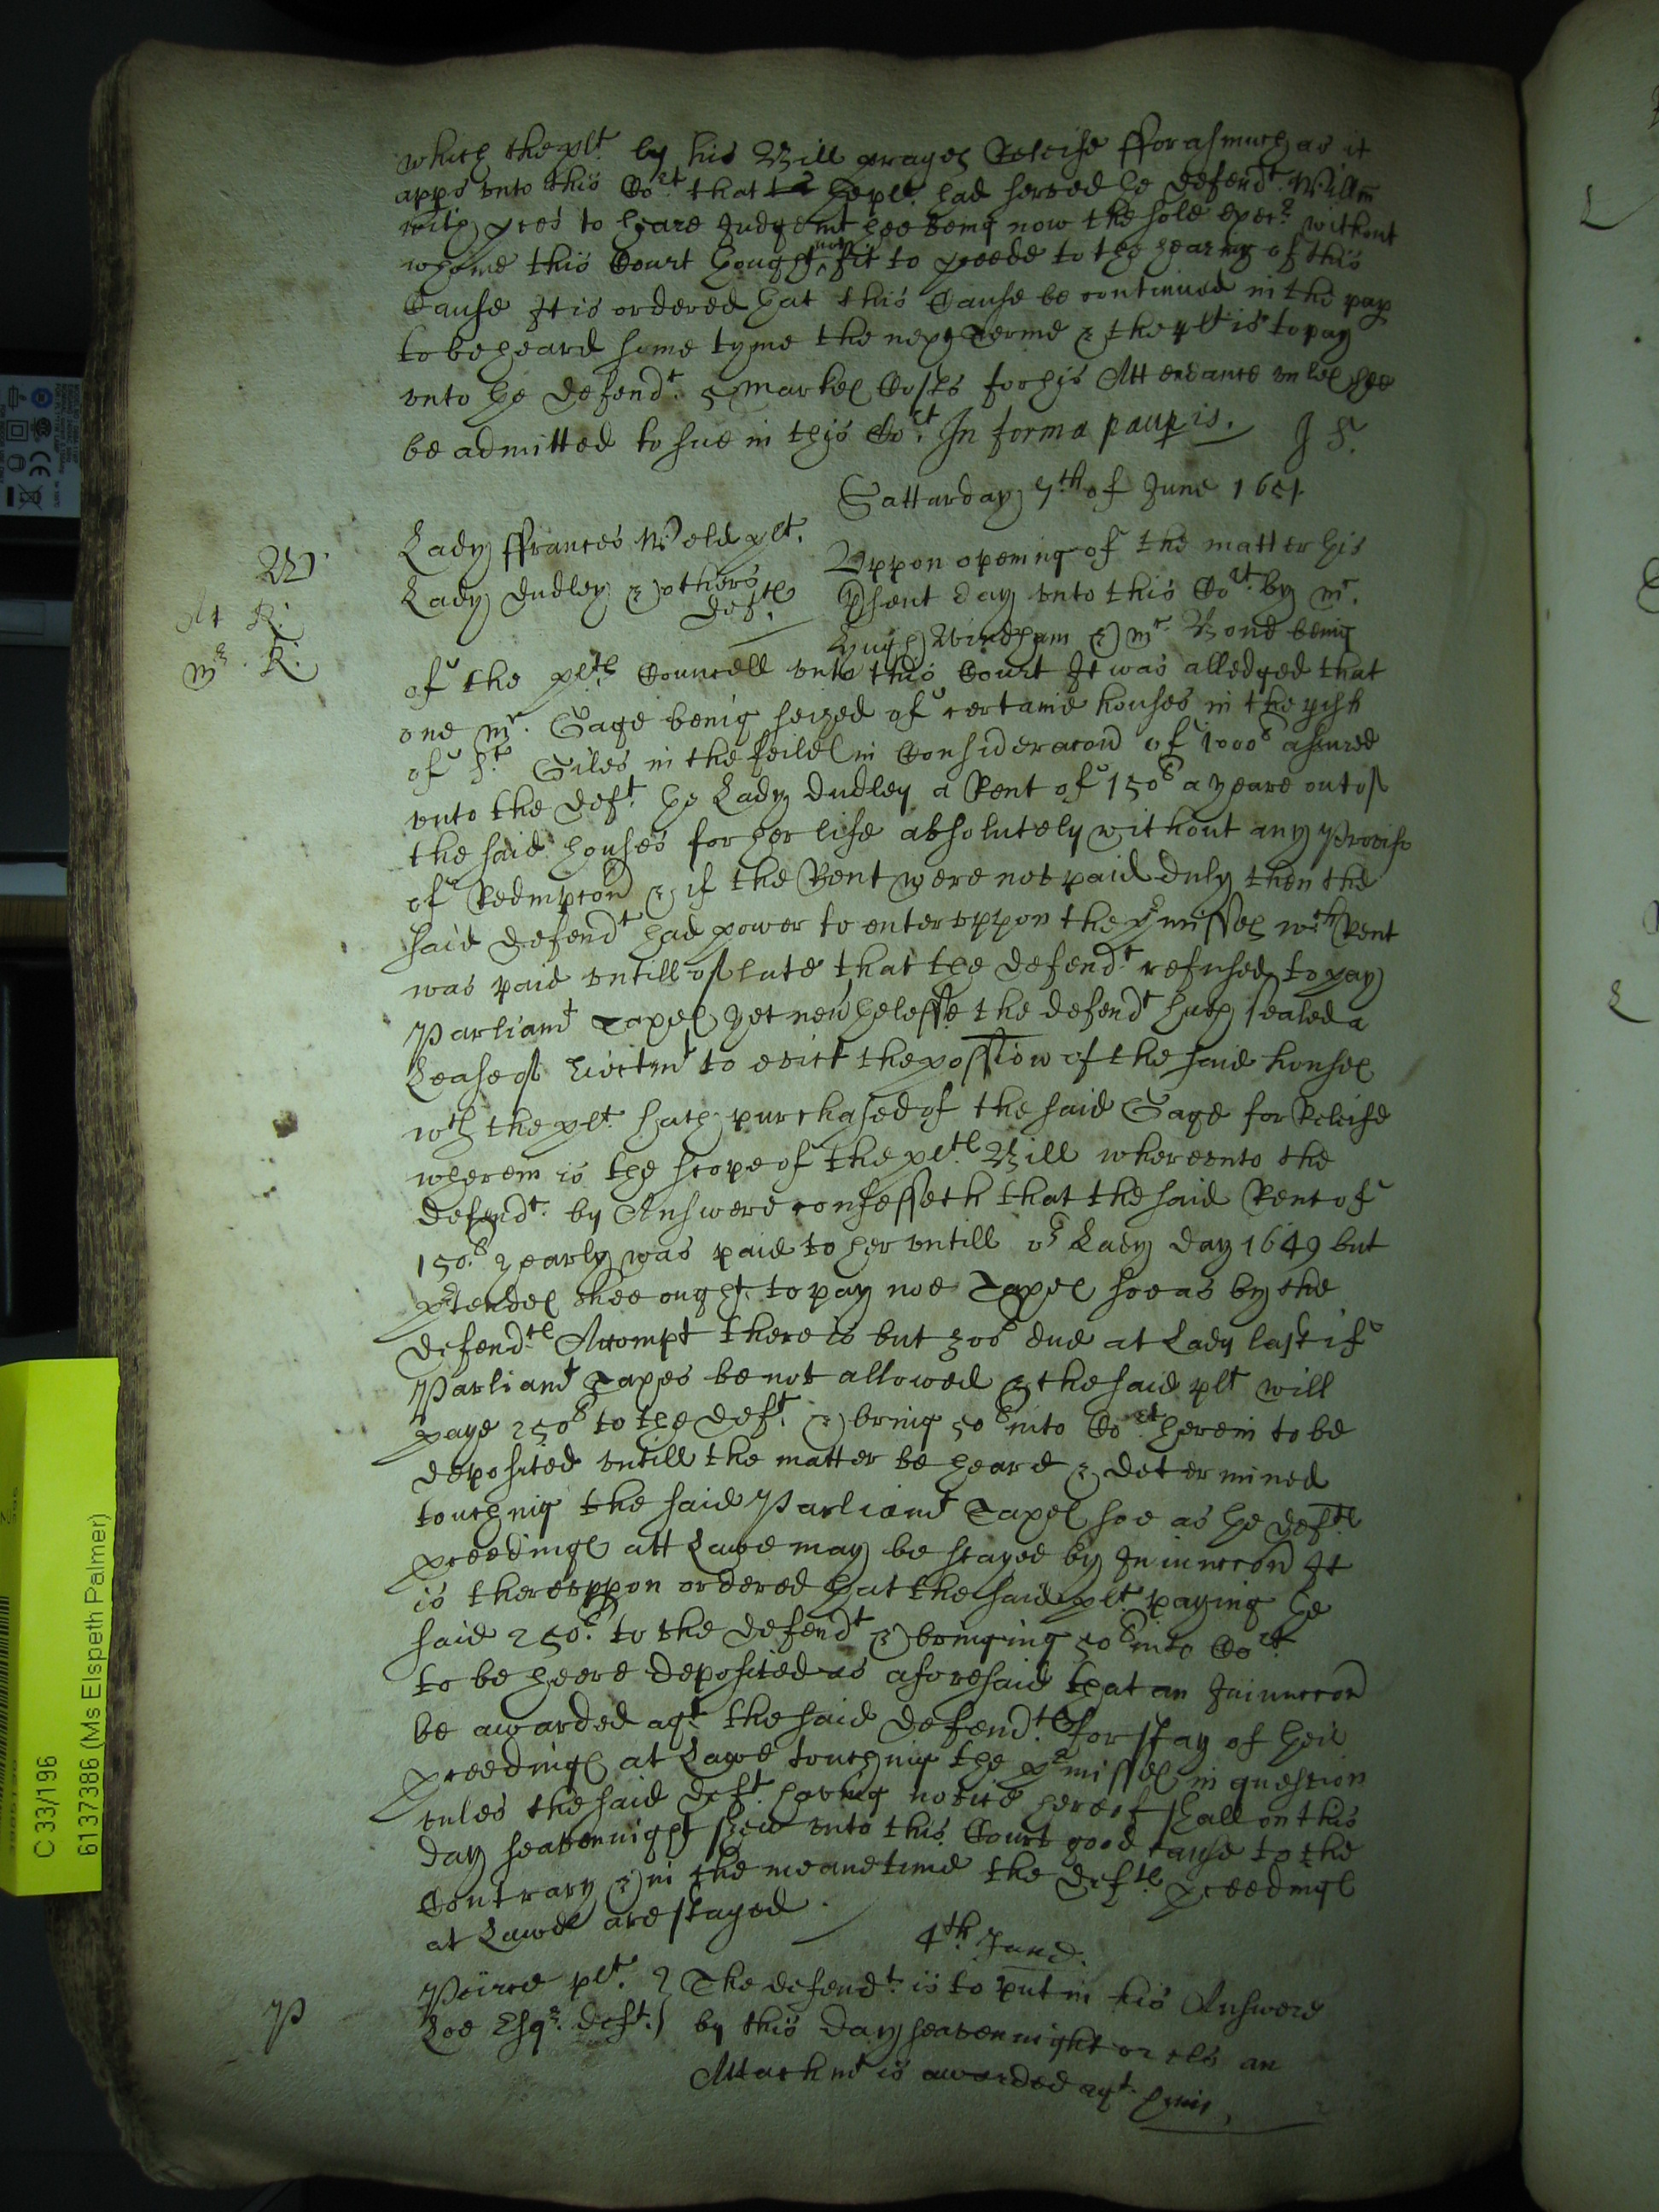 which the plt. by his Bill prayes Releife fforasmuch as it
apps vnto this Cort that the plt. had served the Defendt. Willm
with pces to heare Judgemt hee being now the sole execr. without
whome this Court thought not fit to pceede to the hearing of this
Cause It is ordered that this Cause be continued in the pap
to be heard some tyme the next Terme & the plt is to pay
vnto the Defendt. 5 markes Costs for his Attendance vnles hee
be admitted to sue in this Cort. In forma paupis. J S.
Satturday 7th of June 1651
W.
At R:
Mr. R:
Lady ffrances Weld plt.
Lady Dudley & others
Defts.
Vppon opening of the matter this
psent day vnto this Cort. by Mr.
Hugh Windham & Mr. Bond being
of the plts. Councell vnto this Court It was alledged that
one Mr. Gage being seized of certaine houses in the pish
of St. Giles in the feilds in Consideracon of 1000l assured
vnto the Deft. the Lady Dudley a Rent of 150l a yeare out of
the said houses for her life absolutely without any Proviso
of Redempcon & if the Rent were not paid duly then the
said Defendt had power to enter vppon the pmisses wch Rent
was paid vntill of late that the Defendt. refused to pay
Parliamt Taxes yet neverthelesse the Defendt hath sealed a
Lease of Eiectmt to evict the possion of the said houses
wch the plt. hath purchased of the said Gage for Releife
wherein is the scope of the plts. Bill wherevnto the
Defendt. by Answere confesseth that the said Rent of
150l. yearly was paid to her vntill or Lady Day 1649 but
ptendes shee ought to pay noe Taxes soe as by the
Defendts. Accompt there is but 300l due at Lady last if
Parliamt Taxes be not allowed & the said plt will
paye 250l to the Deft. & bring 50l into Cort. therein to be
deposited vntill the matter be heard & determined
touching the said Parliamt Taxes soe as the Defts.
pceedings att Lawe may be stayed by Iniunccon It
is therevppon ordered that the said plt. paying the
said 250l. to the Defendt & bringing 50l into Cort.
to be heere deposited as aforesaid that an Iniunccon
be awarded agt. the said Defendts. for stay of their
pceedings at Lawe touching the pmisses in question
vnles the said Deft. having notice hereof shall on this
day seavennight shew vnto this Court good cause to the
Contrary & in the meane time the Defts. pceedings
at Lawe are stayed.
4th. June.
P
Peirce plt.
Loe Esqr. deft.
The defendt. is to put in his Answere
by this day seavennight or els an
Attachmt is awarded agt. him.
C 33/196
6137386 (Ms Elspeth Palmer)